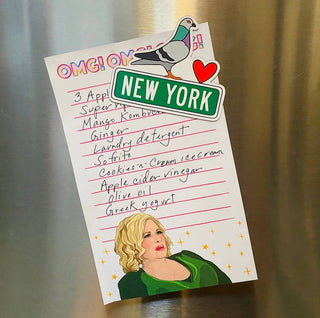 OMG! OMG! OMG!
NEW YORK
3 Appl
Super
Mango Kombuc
Ginger
Laundry detergent
Sofrito
Cookies-n-Cream ice cream
Apple cider vinegar
Olive oil
Greek yogurt